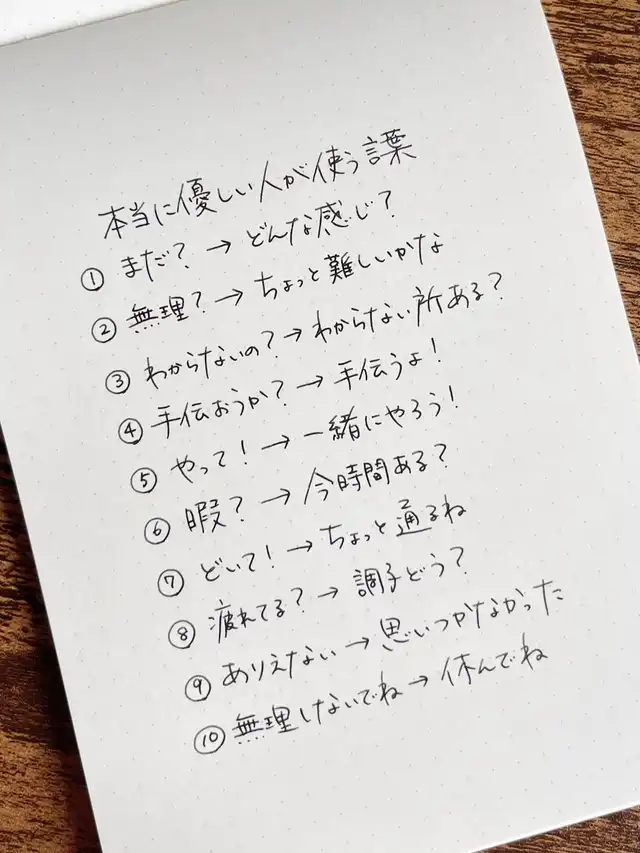 本当に優しい人が使う言葉
① まだ？→ どんな感じ？
② 無理？→ ちょっと難しいかな
③ わからないの？→ わからない所ある？
④ 手伝おうか？→ 手伝うよ！
⑤ やって！→ 一緒にやろう！
⑥ 暇？→ 今時間ある？
⑦ どいて！→ ちょっと通るね
⑧ 疲れてる？→ 調子どう？
⑨ ありえない → 思いつかなかった
⑩ 無理しないでね → 休んでね